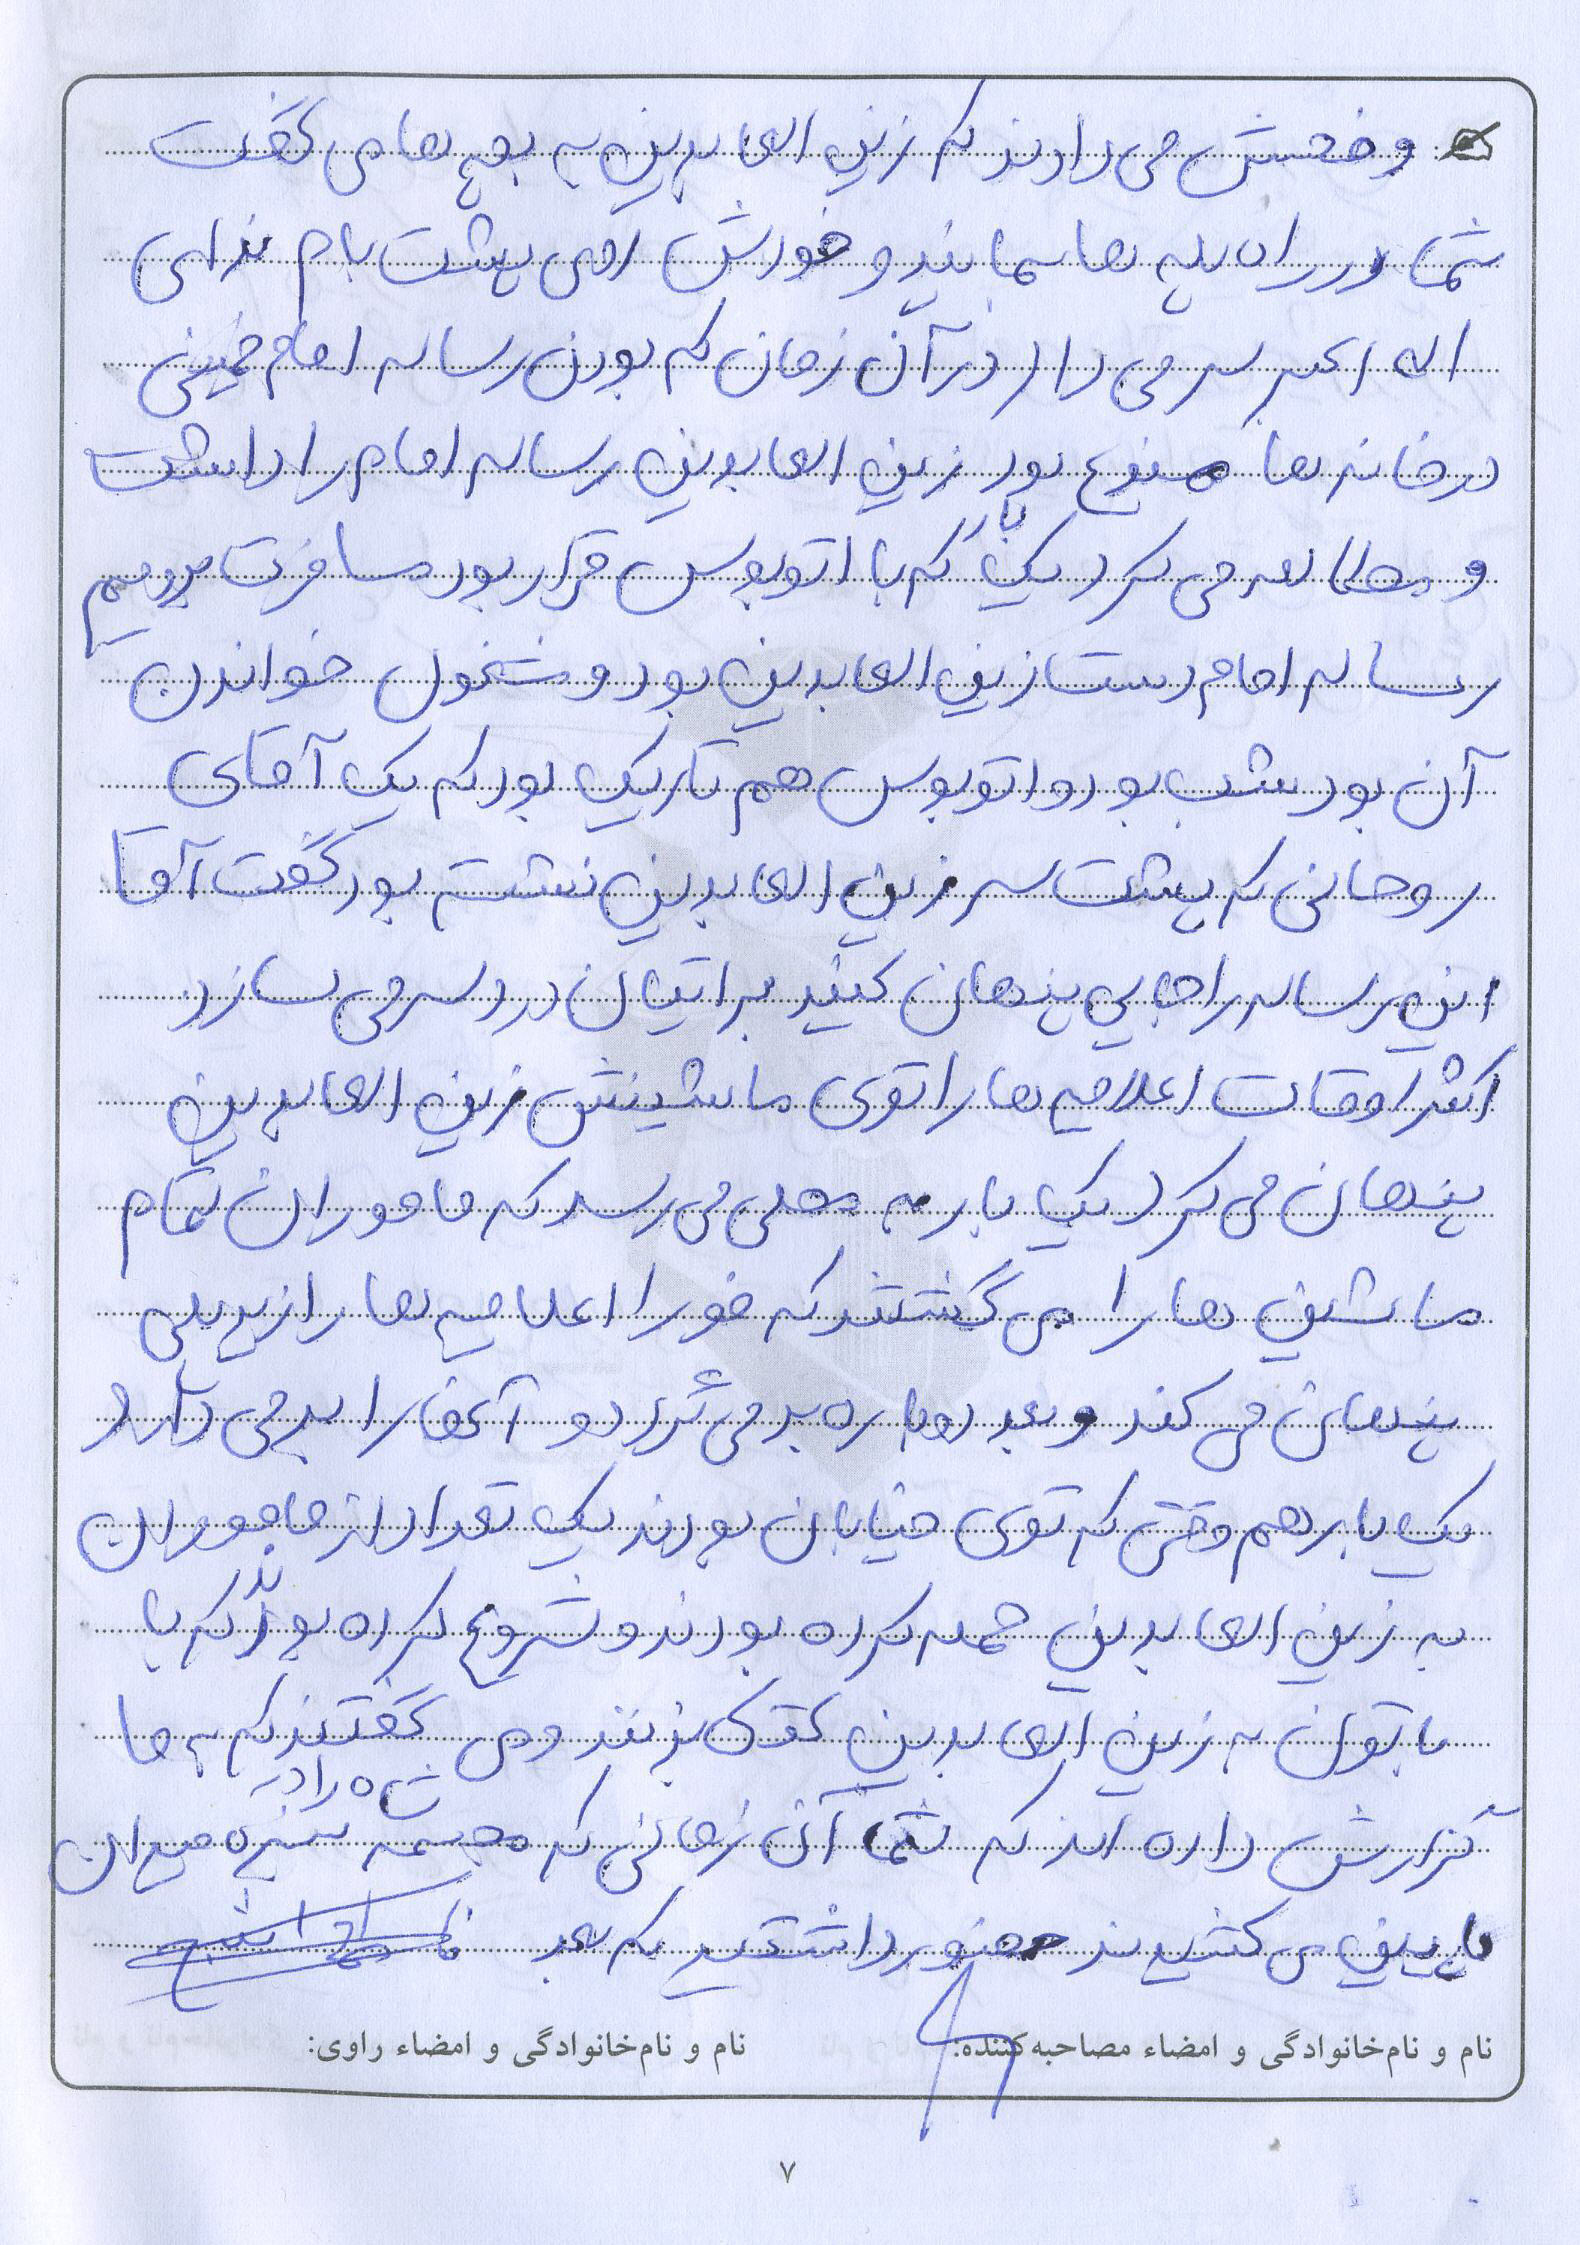 و فحش می دادند که زین العابدین به بچه ها می گفت
شما در راه پله ها بمانید و خودش روی پشت بام ندای
اله اکبر سر می داد در آن زمان که بودن رساله امام خمینی
در خانه ها ممنوع بود زین العابدین رساله امام را داشت
و مطالعه می کرد یک بار که با اتوبوس قرار بود مسافرت برویم
رساله امام دست زین العابدین بود و مشغول خواندن
آن بود شب بود و اتوبوس هم تاریک بود که یک آقای
روحانی که پشت سر زین العابدین نشسته بود گفت آقا
این رساله را جایی پنهان کنید براتیان دردسر می سازد
اکثر اوقات اعلامیه ها را توی ماشینش زین العابدین
پنهان می کرد یک بار به محلی می رسد که ماموران تمام
ماشین ها را می گشتند که فورا اعلامیه ها را زیر پلی
پنهان می کند و بعد دوباره بر می گردد و آنها را بر می دارد
یک بار هم وقتی که توی خیابان بودند یک تعداد از ماموران
به زین العابدین حمله کرده بودند و شروع کرده بودند که با
باتون به زین العابدین کتک بزنند و می گفتند که به ما
گزارش داده اند که شما آن زمانی که مجسمه شاه را در سبزه میدان
پایین می کشیدند حضور داشتید که بعد
نام و نام‌خانوادگی و امضاء مصاحبه‌کننده: نام و نام‌خانوادگی و امضاء راوی:
۷